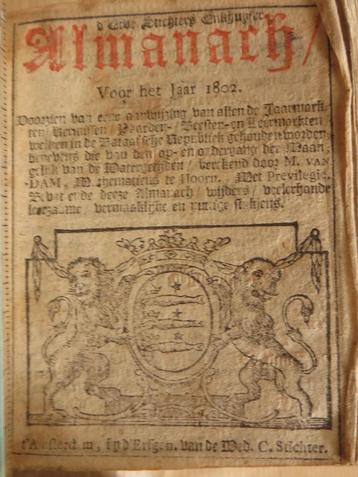 d'Erve Stichters Enkhuyser
Almanach/
Voor het Jaar 1802.
Voorzien van eene aanwijzing van allen de Jaarmark-
ten, Kermissen Paarden- Beesten- en Leermarkten
welken in de Bataafsche Republiek gehouden worden;
benevens die van den op- en ondergang der Maan,
gelijk van de Watergetijden, berekend door M. VAN
DAM, Mathematicus te Hoorn. Met Previlegie.
Bevattende deeze Almanach, wijders, veelerhande
leerzame, vermaaklijke en nuttige stukjens.
t'Amsterdam, by d'Erfgen. van de Wed. C. Stichter.